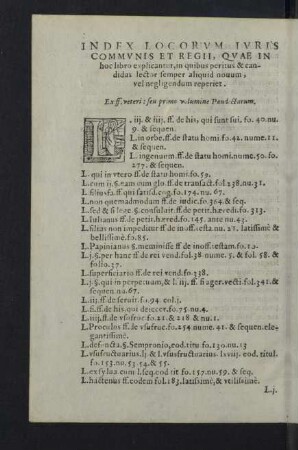 INDEX LOCORVM IVRIS
COMMVNIS ET REGII, QVAE IN
hoc libro explicantur, in quibus peritus & can-
didus lector semper aliquid nouum,
vel negligendum reperiet.
Ex ff. veteri: seu primo volumine Pandectarum.
L. iij. & iiij. ff. de his, qui sunt sui. fo. 40. nu.
9. & sequen.
L. in orbe. ff. de statu homi. fo. 42. nume. 11.
& sequen.
L. ingenuum. ff. de statu homi. nume. 50. fo.
277. & sequen.
L. qui in vtero ff. de statu homi. fo. 59.
L. cum ij. §. eam cum glo. ff. de transact. fol. 238. nu. 31.
L. filiusfa. ff. qui satisd. cog. fo. 174. nu. 67.
L. non quemadmodum ff. de iudic. fo. 364. & seq.
L. sed & si lege. §. consuluit. ff. de petit. hæred. fo. 323.
L. Iulianus ff. de petit. hæred. fo. 145. ante nu. 43.
L. filius non impeditur ff. de inoff. testa. nu. 21. latissimè &
bellissimè. fo. 85.
L. Papinianus §. meminisse ff. de inoff. testam. fo. 12.
L. j. §. per hanc ff. de rei vend. fol. 38 nume. 5. & fol. 58. &
folio. 37.
L. superficiario ff. de rei vend. fo. 138.
L. j. §. qui in perpetuum, & l. iij. ff. si ager. vecti. fol. 341. &
sequen. nu. 67.
L. iij. ff. de seruit. fo. 94. col. j.
L. fi. ff. de his qui deiecer. fo. 75. nu. 4.
L. iij. ff. de vsufruc. fo. 21. & 218 & nu. 1.
L. Proculus ff. de vsufruc. fo. 254 nume. 41. & sequen. ele-
gantissimè.
L. defuncta. §. Sempronio, eod. titu fo. 130. nu. 13
L. vsufructuarius. lj. & l. vsusfructuarius. lxviij. eod. titul.
fo. 153. nu. 53. 54. & 55.
L. ex sylua cum l. seq. eod tit fo. 157. nu. 59. & seq.
L. hactenus ff. eodem fol. 183. latissimè, & vtilissimè.
L. j.